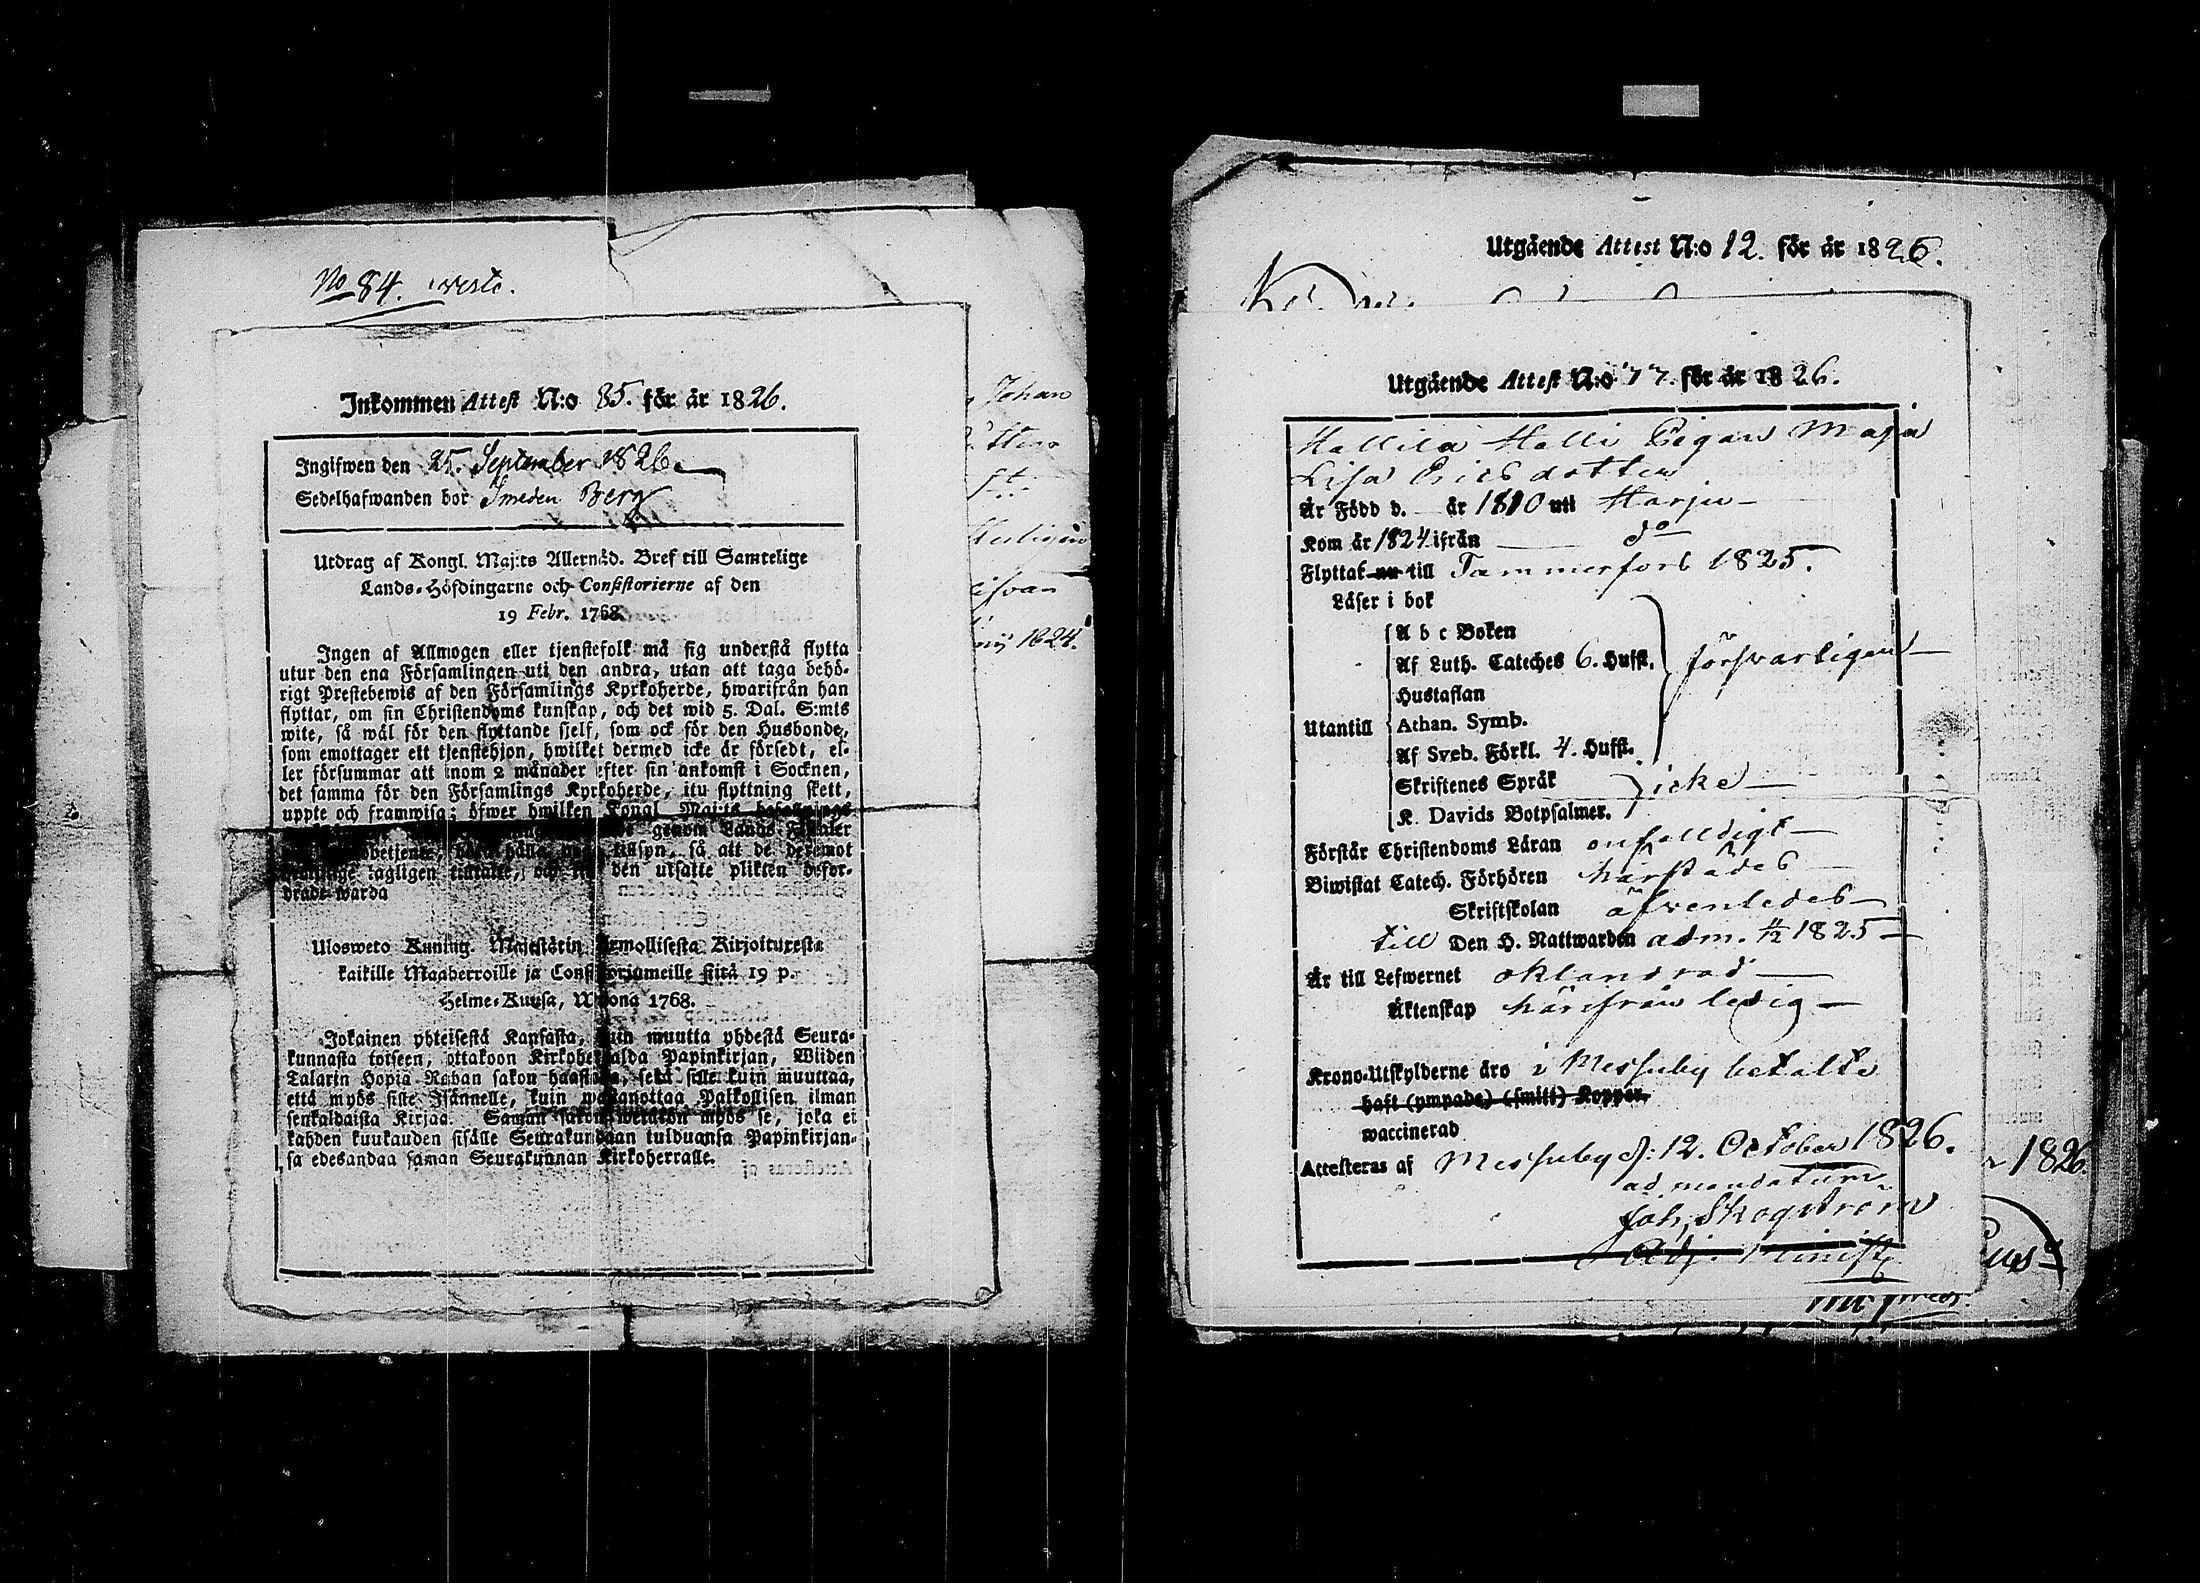 No 84. verte.
Inkommen Attest N:o 85. för år 1826.
Ingifwen den 25. September 1826.
Sedelhafwanden bor Smeden Berg
Utdrag af Kongl. Maj:ts Allernåd. Bref till Samtelige
Lands-Höfdingarne och Consistorierne af den
19 Febr. 1768.
Ingen af Allmogen eller tjenstefolk må sig understå flytta
utur den ena Församlingen uti den andra, utan att taga behö-
rigt Prestebewis af den Församlings Kyrkoherde, hwarifrån han
flyttar, om sin Christendoms kunskap, och det wid 5. Dal. S:mts
wite, så wäl för den flyttande sjelf, som ock för den Husbonde,
som emottager ett tjenstehjon, hwilket dermed icke är försedt, el-
ler försummar att inom 2 månader efter sin ankomst i Socknen,
det samma för den Församlings Kyrkoherde, itu flyttning skett,
uppte och framwisa; öfwer hwilken Kongl. Maj:ts befallnings
genom Lands Fiskaler
hålla tillsyn, så att de deremot
tagligen tilltalte, och den utsatte plikten befor-
drade warda
Ulosweto Kuning. Majestätin Armollisesta Kirjoituxesta
kaikille Maaherroille ja Consistoriumeille siitä 19 p.
Helme-Kuusa, Wuona 1768.
Jokainen yhteisestä Kansasta, kuin muutta yhdestä Seura-
kunnasta toiseen, ottakoon Kirkoherralda Papinkirjan, Wiiden
Talarin Hopia Rahan sakon haastolla, sekä sille kuin muuttaa,
että myös sille Isännelle, kuin wastanottaa Palkollisen ilman
senkaldaista Kirjaa. Saman sakon wetäkön myös se, joka ei
kahden kuukauden sisälle Seurakundaan tulduansa Papinkirjan-
sa edesandaa saman Seurakunnan Kirkoherralle.
Johan
1824.
Utgående Attest N:o 12. för år 1826.
Utgående Attest N:o 77. för år 1826.
Hallila Halli Pigan Maja
Lisa Ericsdotter
Är Född d. — år 1810 uti Harju —
Kom år 1824 ifrån — do
Flyttat nu till Tammerfors 1825.
Läser i bok
A b c Boken
Af Luth. Cateches 6. Hufst. försvarligen —
Hustaflan
Utantill Athan. Symb.
Af Sveb. Förkl. 4. Hufst.
Skriftenes Språk icke —
K. Davids Botpsalmer.
Förstår Christendoms Läran enfaldigt —
Biwistat Catech. Förhören härstädes —
Skriftskolan äfvenledes —
till Den H. Nattwarden adm. 4/12 1825 —
Är till Lefwernet oklandrad —
Äktenskap härifrån ledig —
Krono-Utskylderne äro i Messuby betalte
haft (ympade) (smitt) Koppor.
waccinerad
Attesteras af Messuby d: 12. October 1826.
ad mandatum
Joh. Skogström
Adj. Minist.
1826.